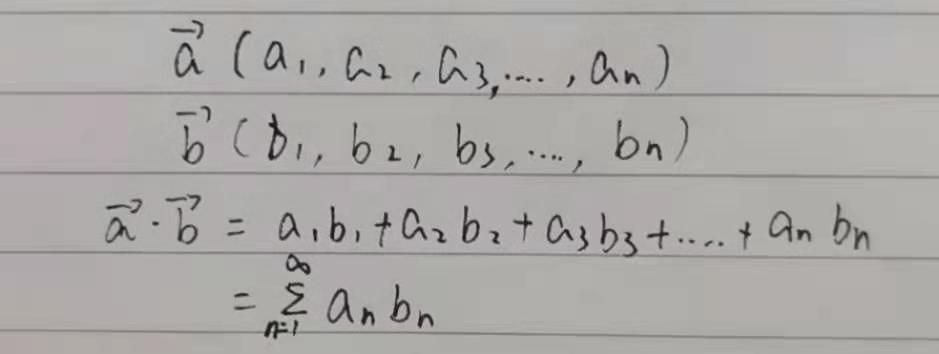 a⃗ (a₁, a₂, a₃, ...., aₙ)
b⃗ (b₁, b₂, b₃, ...., bₙ)
a⃗ · b⃗ = a₁b₁ + a₂b₂ + a₃b₃ + .... + aₙbₙ
= ∑_{n=1}^{∞} aₙbₙ